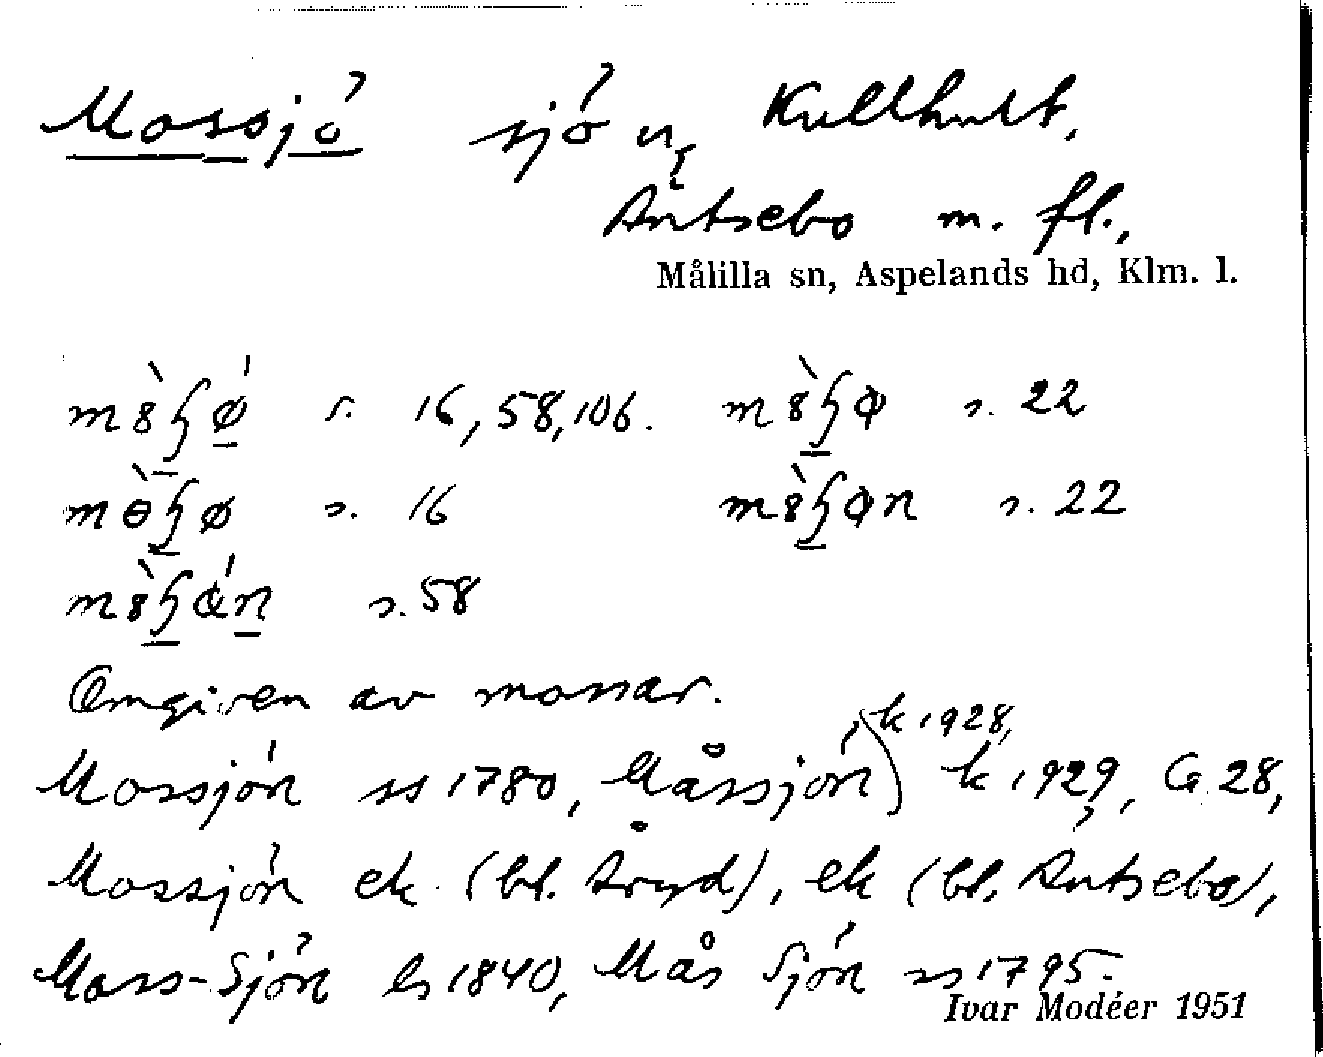 Mossjö sjö u. Kullhult,
Äntsebo m. fl.,
Målilla sn, Aspelands hd, Klm. l.
s. 16, 58, 106. s. 22
s. 16 s. 22
s. 58
Omgiven av mossar.
k 1928,
Mossjön ss 1780, Måssjön k 1929, G 28,
Mossjön ek (bl. Åryd), ek (bl. Äntsebo),
Moss-Sjön ls 1840, Mås Sjön ss 1795.
Ivar Modéer 1951